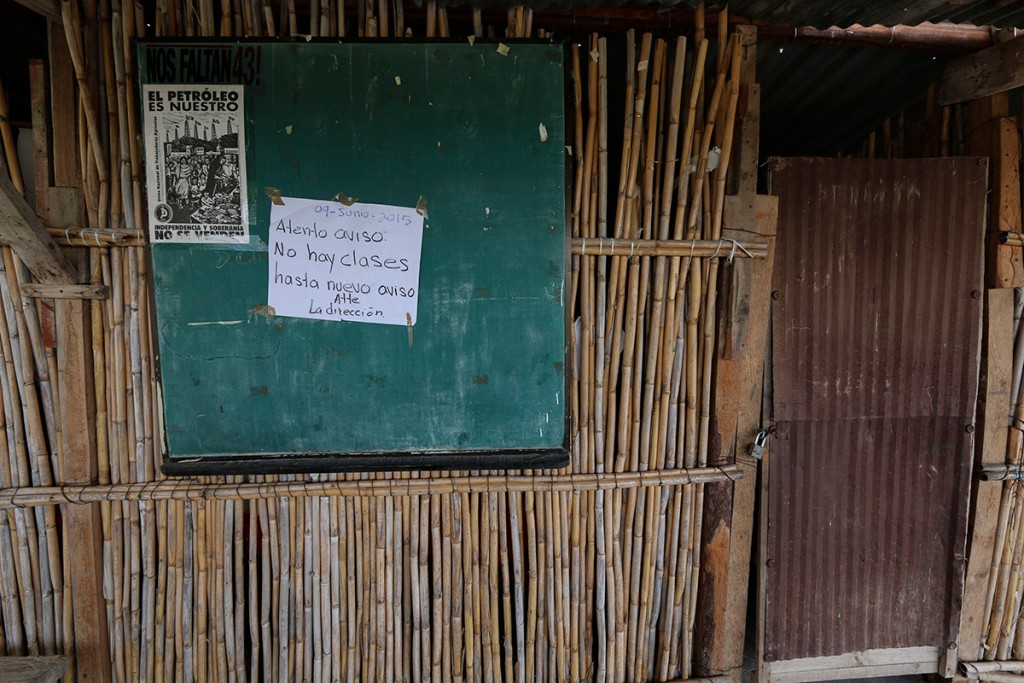 NOS FALTAN 43!
EL PETRÓLEO
ES NUESTRO
Nacional de Trabajadores Agrícolas
INDEPENDENCIA Y SOBERANÍA
NO SE VENDEN
09-Junio-2015
Atento aviso:
No hay clases
hasta nuevo aviso
Atte
La dirección.